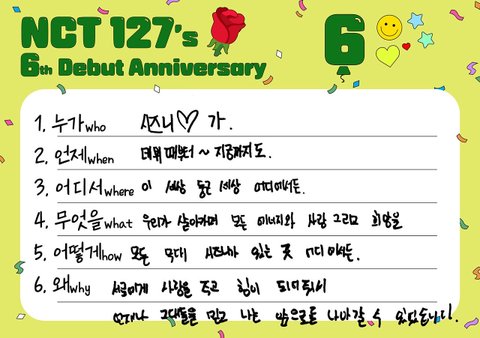 NCT 127's
6th Debut Anniversary
6
1. 누가who 시즈니♡ 가.
2. 언제when 데뷔 때부터 ~ 지금까지도.
3. 어디서where 이 세상 둥근 세상 어디에서든.
4. 무엇을what 우리가 살아가며 모든 에너지와 사랑 그리고 희망을
5. 어떻게how 모든 무대 시즈니가 있는 곳 어디에서든.
6. 왜why 서로에게 사랑을 주고 힘이 되어줘서
언제나 그대들을 믿고 나는 앞으로도 나아갈 수 있었습니다.